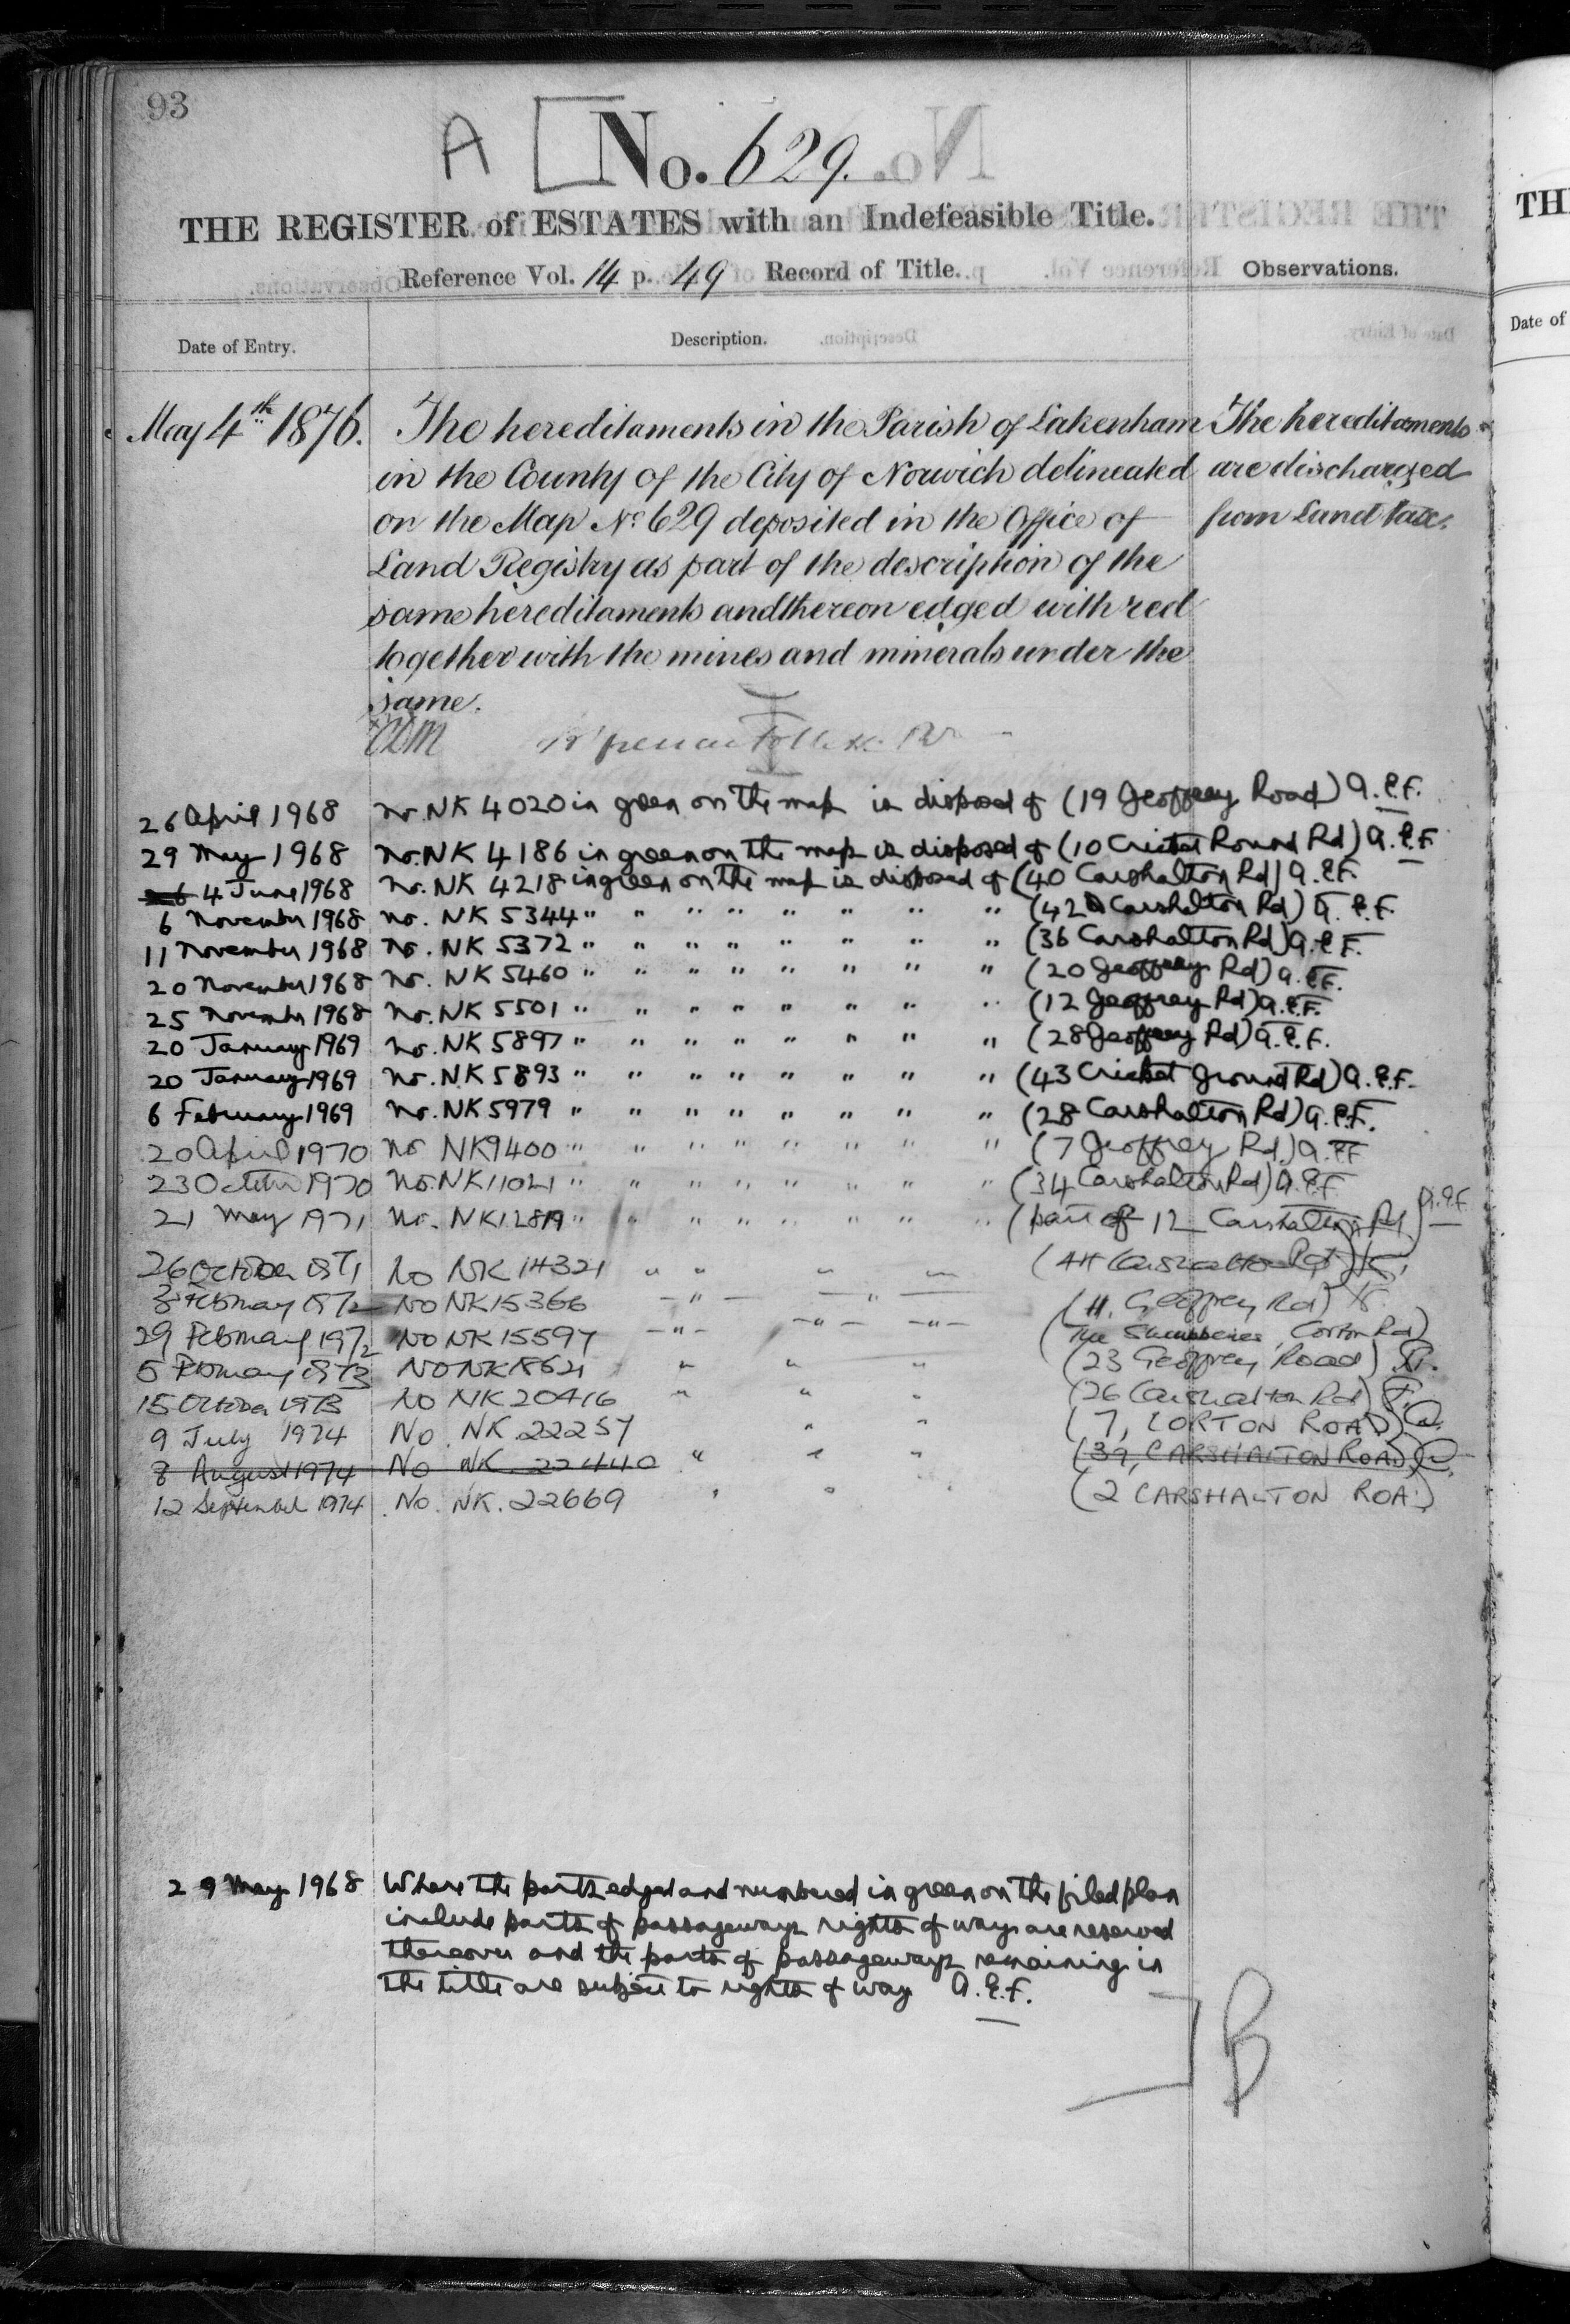 93
A No. 629.
THE REGISTER of ESTATES with an Indefeasible Title.
Reference Vol. 14 p. 49 Record of Title. Observations.
Date of Entry. Description.
May 4th 1876. The hereditaments in the Parish of Lakenham The hereditaments
in the County of the City of Norwich delineated are discharged
on the Map No 629 deposited in the Office of from Land Tax.
Land Registry as part of the description of the
same hereditaments and thereon edged with red
together with the mines and minerals under the
same.
26 April 1968 No. NK 4020 in green on the map is disposed of (19 Geoffrey Road) A.E.F.
29 May 1968 No. NK 4186 in green on the map is disposed of (10 Cricket Round Rd) A.E.F.
4 June 1968 No. NK 4218 in green on the map is disposed of (40 Carshalton Rd) A.E.F.
6 November 1968 No. NK 5344 " " " " " " " " (42 Carshalton Rd) A.E.F.
11 November 1968 No. NK 5372 " " " " " " " " (36 Carshalton Rd) A.E.F.
20 November 1968 No. NK 5460 " " " " " " " " (20 Geoffrey Rd) A.E.F.
25 November 1968 No. NK 5501 " " " " " " " " (12 Geoffrey Rd) A.E.F.
20 January 1969 No. NK 5897 " " " " " " " " (28 Geoffrey Rd) A.E.F.
20 January 1969 No. NK 5893 " " " " " " " " (43 Cricket Ground Rd) A.E.F.
6 February 1969 No. NK 5979 " " " " " " " " (28 Carshalton Rd) A.E.F.
20 April 1970 No NK9400 " " " " " " " " (7 Geoffrey Rd) A.E.F.
23 October 1970 No. NK11021 " " " " " " " " (34 Carshalton Rd) A.E.F.
21 May 1971 No. NK12819 " " " " " " " " (part of 12 Carshalton Rd) A.E.F.
26 October 1971 No NK 14321 " " " " (44 Carshalton Rd)
3 February 1972 No NK15366 " " (11. Geoffrey Rd)
29 February 1972 No NK 15597 " " " (The Corton Rd)
5 February 1973 No NK18621 " " " (23 Geoffrey Road)
15 October 1973 No NK 20416 " " " (26 Carshalton Rd)
9 July 1974 No. NK 22257 " " (7, CORTON ROAD)
8 August 1974 No NK. 22440 " " " (39, CARSHALTON ROAD)
12 September 1974 No. NK. 22669 " " " (2 CARSHALTON ROAD)
29 May 1968 Where the parts edged and numbered in green on the filed plan
include parts of passageways rights of way are reserved
thereover and the parts of passageways remaining in
the title are subject to rights of way A.E.F.
B